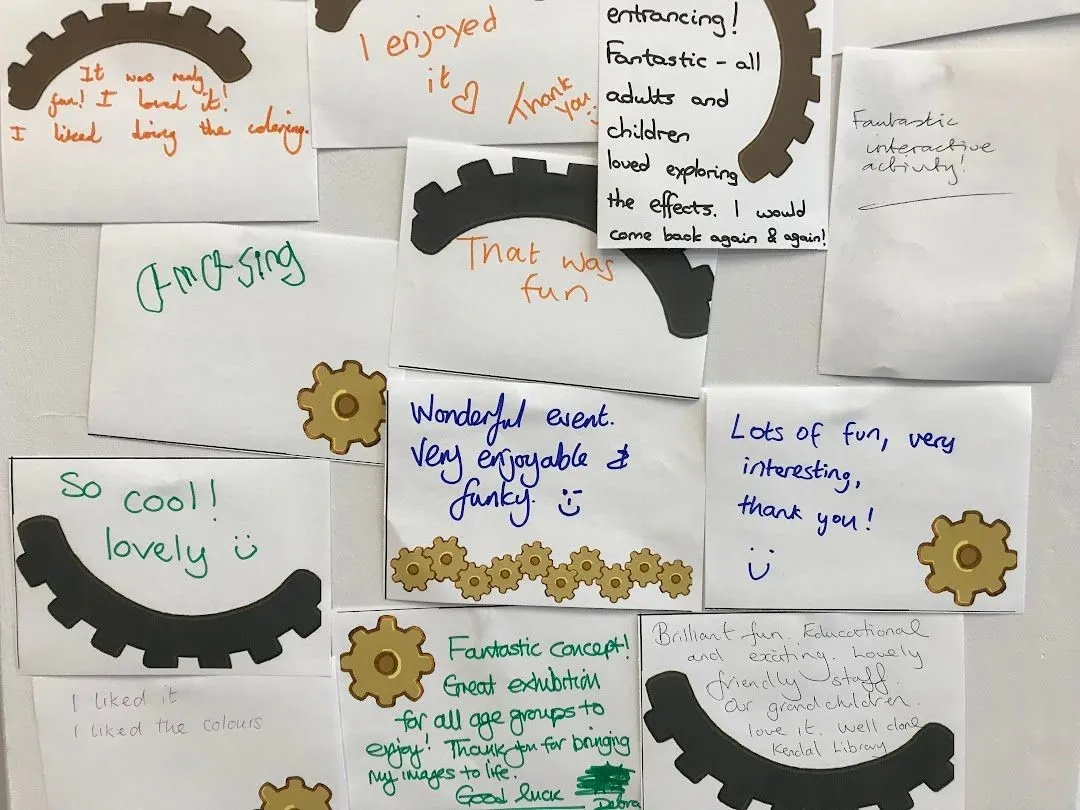 It was really
fun! I loved it!
I liked doing the colering.
I enjoyed
it ♡
Thank
you :)
entrancing!
Fantastic - all
adults and
children
loved exploring
the effects. I would
come back again & again!
Fantastic
interactive
activity!
amasing
That was
fun
Wonderful event.
Very enjoyable &
funky. :)
Lots of fun, very
interesting,
thank you!
:)
So cool!
lovely :)
I liked it
I liked the colours
Fantastic concept!
Great exhibition
for all age groups to
enjoy! Thank you for bringing
my images to life.
Good luck
Debra
Brilliant fun. Educational
and exciting. Lovely
friendly staff.
Our grandchildren
love it. Well done
Kendal Library